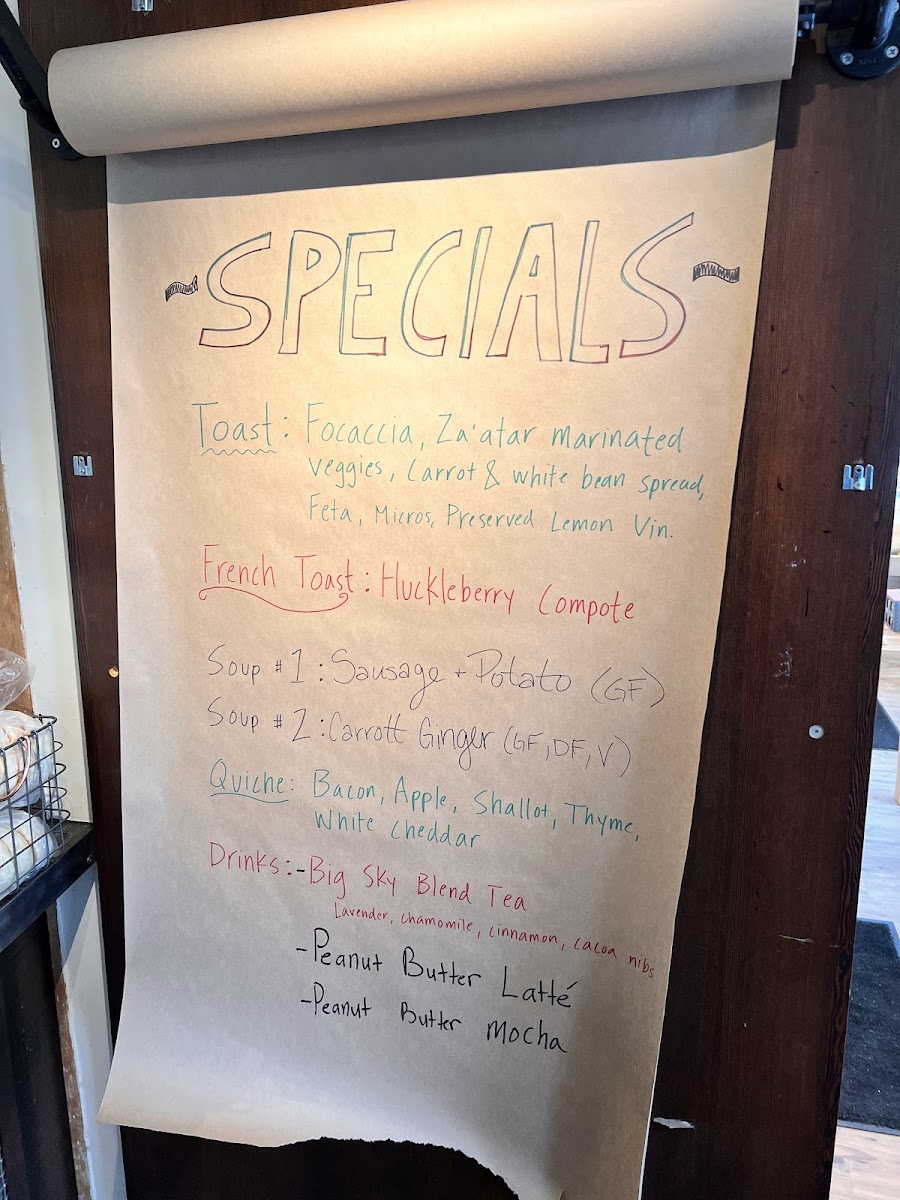 ~SPECIALS~
Toast: Focaccia, Za'atar marinated
veggies, Carrot & white bean spread,
Feta, Micros, Preserved Lemon Vin.
French Toast: Huckleberry Compote
Soup #1: Sausage + Potato (GF)
Soup #2: Carrott Ginger (GF, DF, V)
Quiche: Bacon, Apple, Shallot, Thyme,
White Cheddar
Drinks: -Big Sky Blend Tea
Lavender, chamomile, cinnamon, cacoa nibs
-Peanut Butter Latté
-Peanut Butter Mocha